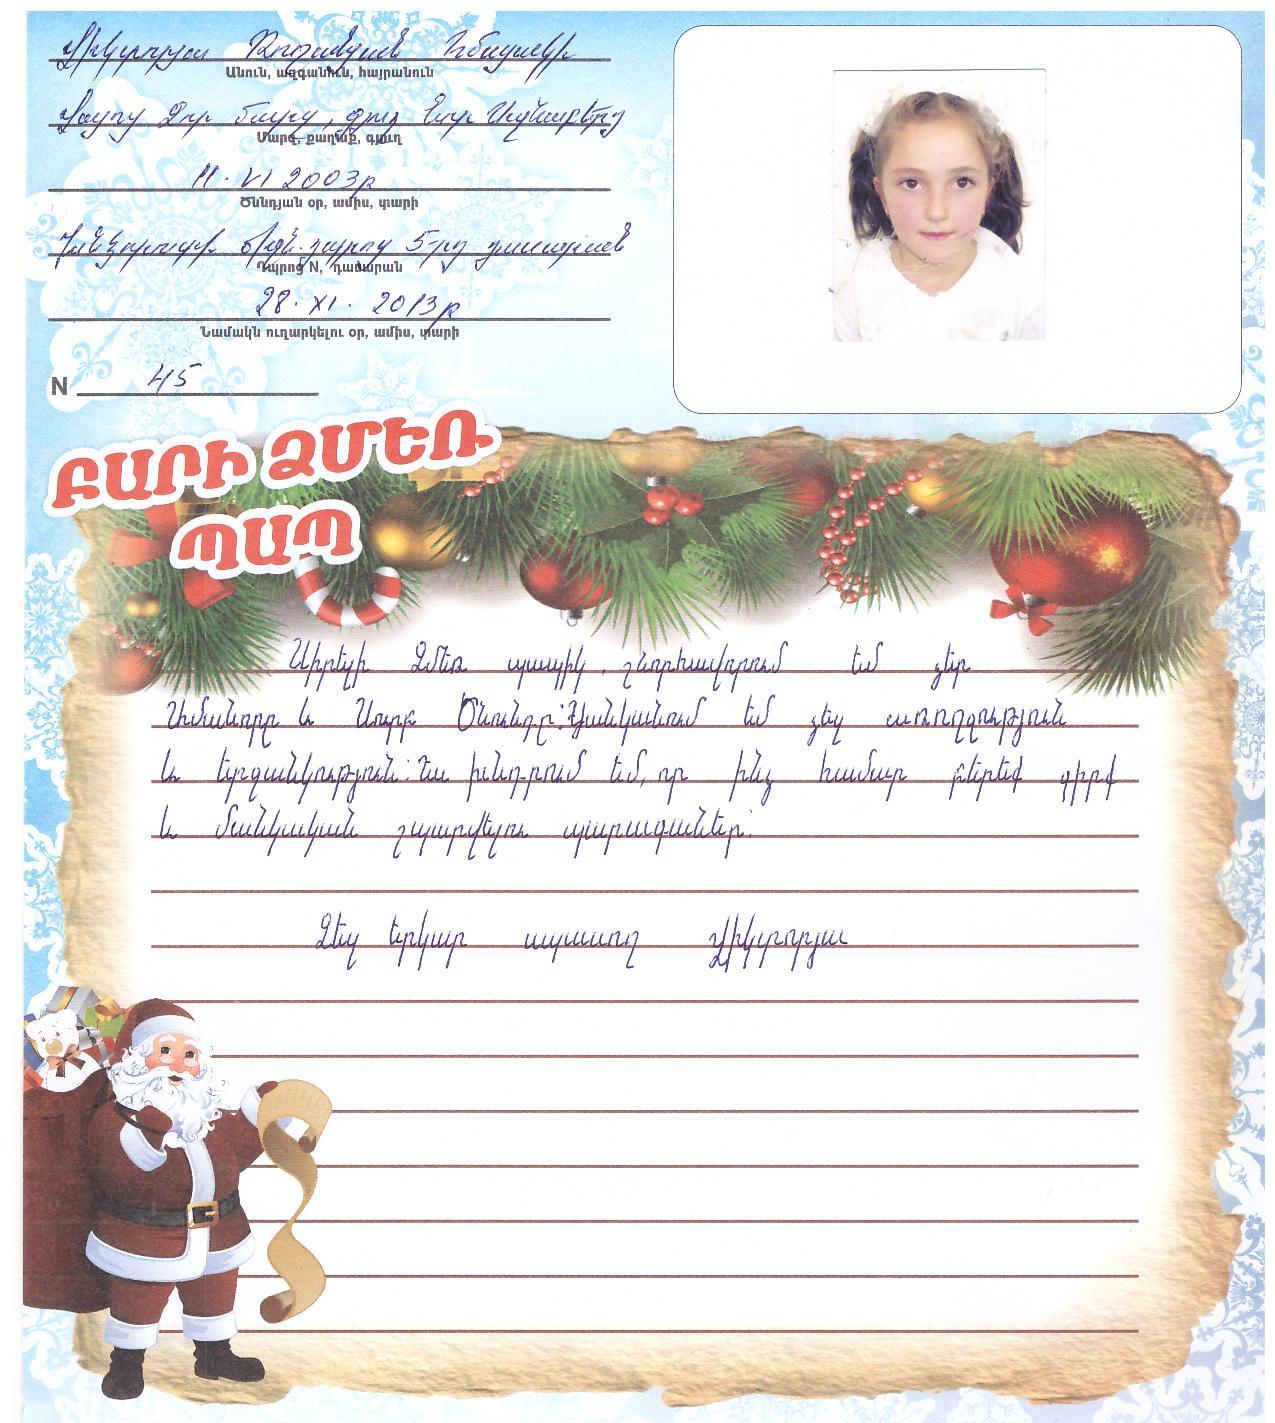 Վիկտորյա Ռոստոմյան Հմայակի
Անուն, ազգանուն, հայրանուն
Վայոց Ձոր մարզ, գյուղ Նոր Ազնաբերդ
Մարզ, քաղաք, գյուղ
11. VI 2003թ
Ծննդյան օր, ամիս, տարի
միջն. դպրոց 5-րդ դասարան
Դպրոց N, դասարան
28. XI. 2013թ
Նամակն ուղարկելու օր, ամիս, տարի
N 45
ԲԱՐԻ ՁՄԵՌ
ՊԱՊ
Սիրելի Ձմեռ պապիկ, շնորհավորում եմ ձեր
Ամանորը և Սուրբ Ծնունդը: Ցանկանում եմ ձեզ առողջություն
և երջանկություն: Ես խնդրում եմ, որ ինձ համար բերեք գիրք
և մանկական շպարվելու պարագաներ:
Ձեզ երկար սպասող Վիկտորյա